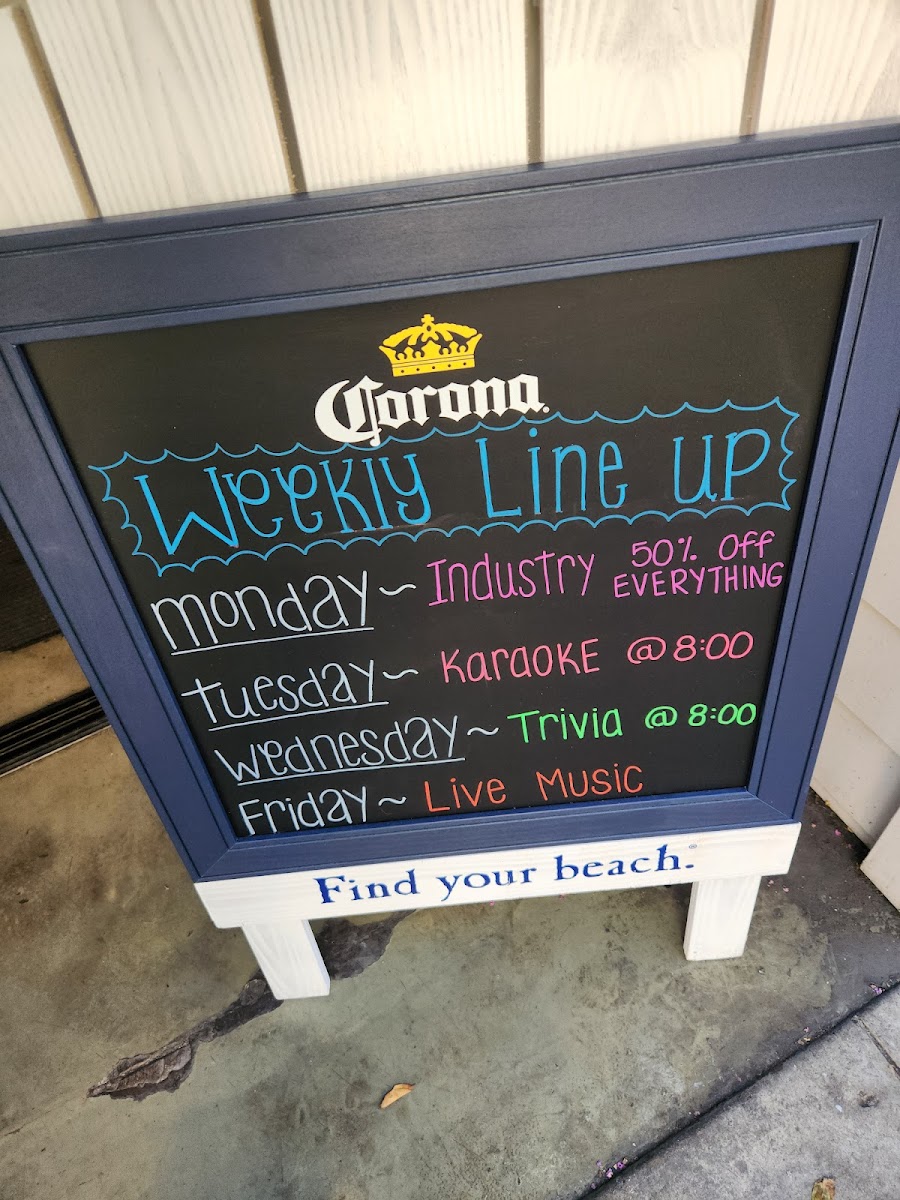 Corona.
Weekly Line up
monday ~ Industry 50% Off
EVERYTHING
tuesday ~ Karaoke @ 8:00
Wednesday ~ Trivia @ 8:00
Friday ~ Live Music
Find your beach.®